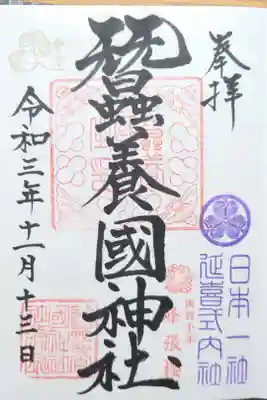 奉拝
日本一社
延喜式内社
蠶養國神社
令和三年十一月十三日